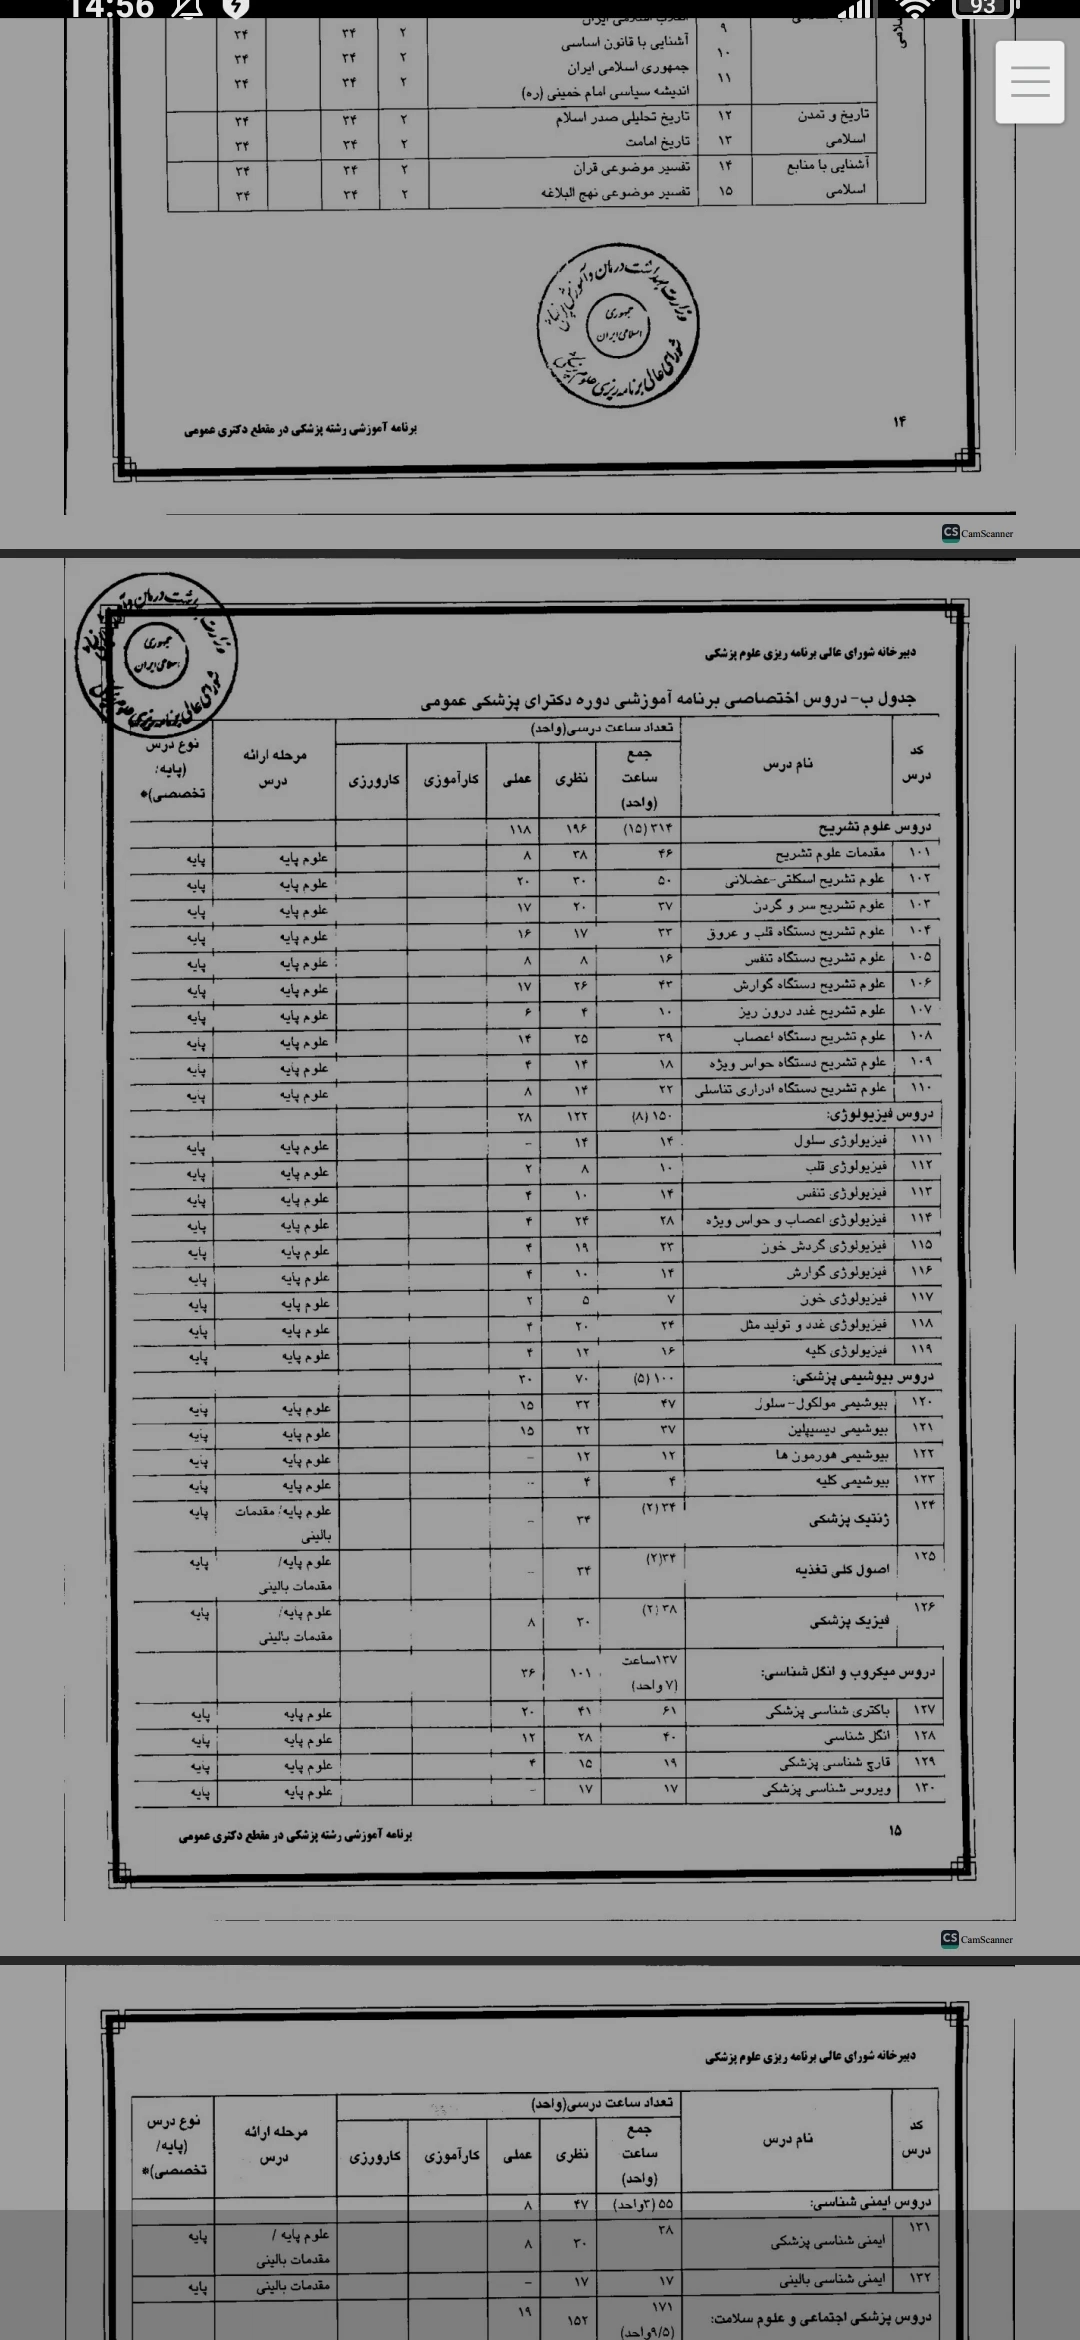 14:56
93
انقلاب اسلامی ایران
۹ ۲ ۳۴ ۳۴
آشنایی با قانون اساسی
۱۰ جمهوری اسلامی ایران ۲ ۳۴ ۳۴
۱۱ اندیشه سیاسی امام خمینی (ره) ۲ ۳۴ ۳۴
تاریخ و تمدن ۱۲ تاریخ تحلیلی صدر اسلام ۲ ۳۴ ۳۴
اسلامی ۱۳ تاریخ امامت ۲ ۳۴ ۳۴
آشنایی با منابع ۱۴ تفسیر موضوعی قران ۲ ۳۴ ۳۴
اسلامی ۱۵ تفسیر موضوعی نهج البلاغه ۲ ۳۴ ۳۴
جمهوری
اسلامی ایران
۱۴ برنامه آموزشی رشته پزشکی در مقطع دکتری عمومی
CS CamScanner
جمهوری
اسلامی ایران
دبیرخانه شورای عالی برنامه ریزی علوم پزشکی
جدول ب- دروس اختصاصی برنامه آموزشی دوره دکترای پزشکی عمومی
کد درس نام درس تعداد ساعت درسی(واحد) مرحله ارائه درس نوع درس (پایه/ تخصصی)*
جمع ساعت (واحد) نظری عملی کارآموزی کارورزی
دروس علوم تشریح ۳۱۴(۱۵) ۱۹۶ ۱۱۸
۱۰۱ مقدمات علوم تشریح ۴۶ ۳۸ ۸ علوم پایه پایه
۱۰۲ علوم تشریح اسکلتی-عضلانی ۵۰ ۳۰ ۲۰ علوم پایه پایه
۱۰۳ علوم تشریح سر و گردن ۳۷ ۲۰ ۱۷ علوم پایه پایه
۱۰۴ علوم تشریح دستگاه قلب و عروق ۳۳ ۱۷ ۱۶ علوم پایه پایه
۱۰۵ علوم تشریح دستگاه تنفس ۱۶ ۸ ۸ علوم پایه پایه
۱۰۶ علوم تشریح دستگاه گوارش ۴۳ ۲۶ ۱۷ علوم پایه پایه
۱۰۷ علوم تشریح غدد درون ریز ۱۰ ۴ ۶ علوم پایه پایه
۱۰۸ علوم تشریح دستگاه اعصاب ۳۹ ۲۵ ۱۴ علوم پایه پایه
۱۰۹ علوم تشریح دستگاه حواس ویژه ۱۸ ۱۴ ۴ علوم پایه پایه
۱۱۰ علوم تشریح دستگاه ادراری تناسلی ۲۲ ۱۴ ۸ علوم پایه پایه
دروس فیزیولوژی: ۱۵۰(۸) ۱۲۲ ۲۸
۱۱۱ فیزیولوژی سلول ۱۴ ۱۴ - علوم پایه پایه
۱۱۲ فیزیولوژی قلب ۱۰ ۸ ۲ علوم پایه پایه
۱۱۳ فیزیولوژی تنفس ۱۴ ۱۰ ۴ علوم پایه پایه
۱۱۴ فیزیولوژی اعصاب و حواس ویژه ۲۸ ۲۴ ۴ علوم پایه پایه
۱۱۵ فیزیولوژی گردش خون ۲۳ ۱۹ ۴ علوم پایه پایه
۱۱۶ فیزیولوژی گوارش ۱۴ ۱۰ ۴ علوم پایه پایه
۱۱۷ فیزیولوژی خون ۷ ۵ ۲ علوم پایه پایه
۱۱۸ فیزیولوژی غدد و تولید مثل ۲۴ ۲۰ ۴ علوم پایه پایه
۱۱۹ فیزیولوژی کلیه ۱۶ ۱۲ ۴ علوم پایه پایه
دروس بیوشیمی پزشکی: ۱۰۰(۵) ۷۰ ۳۰
۱۲۰ بیوشیمی مولکول-سلول ۴۷ ۳۲ ۱۵ علوم پایه پایه
۱۲۱ بیوشیمی دیسیپلین ۳۷ ۲۲ ۱۵ علوم پایه پایه
۱۲۲ بیوشیمی هورمون ها ۱۲ ۱۲ - علوم پایه پایه
۱۲۳ بیوشیمی کلیه ۴ ۴ - علوم پایه پایه
۱۲۴ ژنتیک پزشکی ۳۴(۲) ۳۴ - علوم پایه/ مقدمات بالینی پایه
۱۲۵ اصول کلی تغذیه ۳۴(۲) ۳۴ - علوم پایه/ مقدمات بالینی پایه
۱۲۶ فیزیک پزشکی ۳۸(۲) ۳۰ ۸ علوم پایه/ مقدمات بالینی پایه
دروس میکروب و انگل شناسی: ۱۳۷ساعت (۷ واحد) ۱۰۱ ۳۶
۱۲۷ باکتری شناسی پزشکی ۶۱ ۴۱ ۲۰ علوم پایه پایه
۱۲۸ انگل شناسی ۴۰ ۲۸ ۱۲ علوم پایه پایه
۱۲۹ قارچ شناسی پزشکی ۱۹ ۱۵ ۴ علوم پایه پایه
۱۳۰ ویروس شناسی پزشکی ۱۷ ۱۷ - علوم پایه پایه
۱۵ برنامه آموزشی رشته پزشکی در مقطع دکتری عمومی
CS CamScanner
دبیرخانه شورای عالی برنامه ریزی علوم پزشکی
کد درس نام درس تعداد ساعت درسی(واحد) مرحله ارائه درس نوع درس (پایه/ تخصصی)*
جمع ساعت (واحد) نظری عملی کارآموزی کارورزی
دروس ایمنی شناسی: ۵۵ (۳واحد) ۴۷ ۸
۱۳۱ ایمنی شناسی پزشکی ۳۸ ۳۰ ۸ علوم پایه / مقدمات بالینی پایه
۱۳۲ ایمنی شناسی بالینی ۱۷ ۱۷ - مقدمات بالینی پایه
دروس پزشکی اجتماعی و علوم سلامت: ۱۷۱ (۹/۵واحد) ۱۵۲ ۱۹